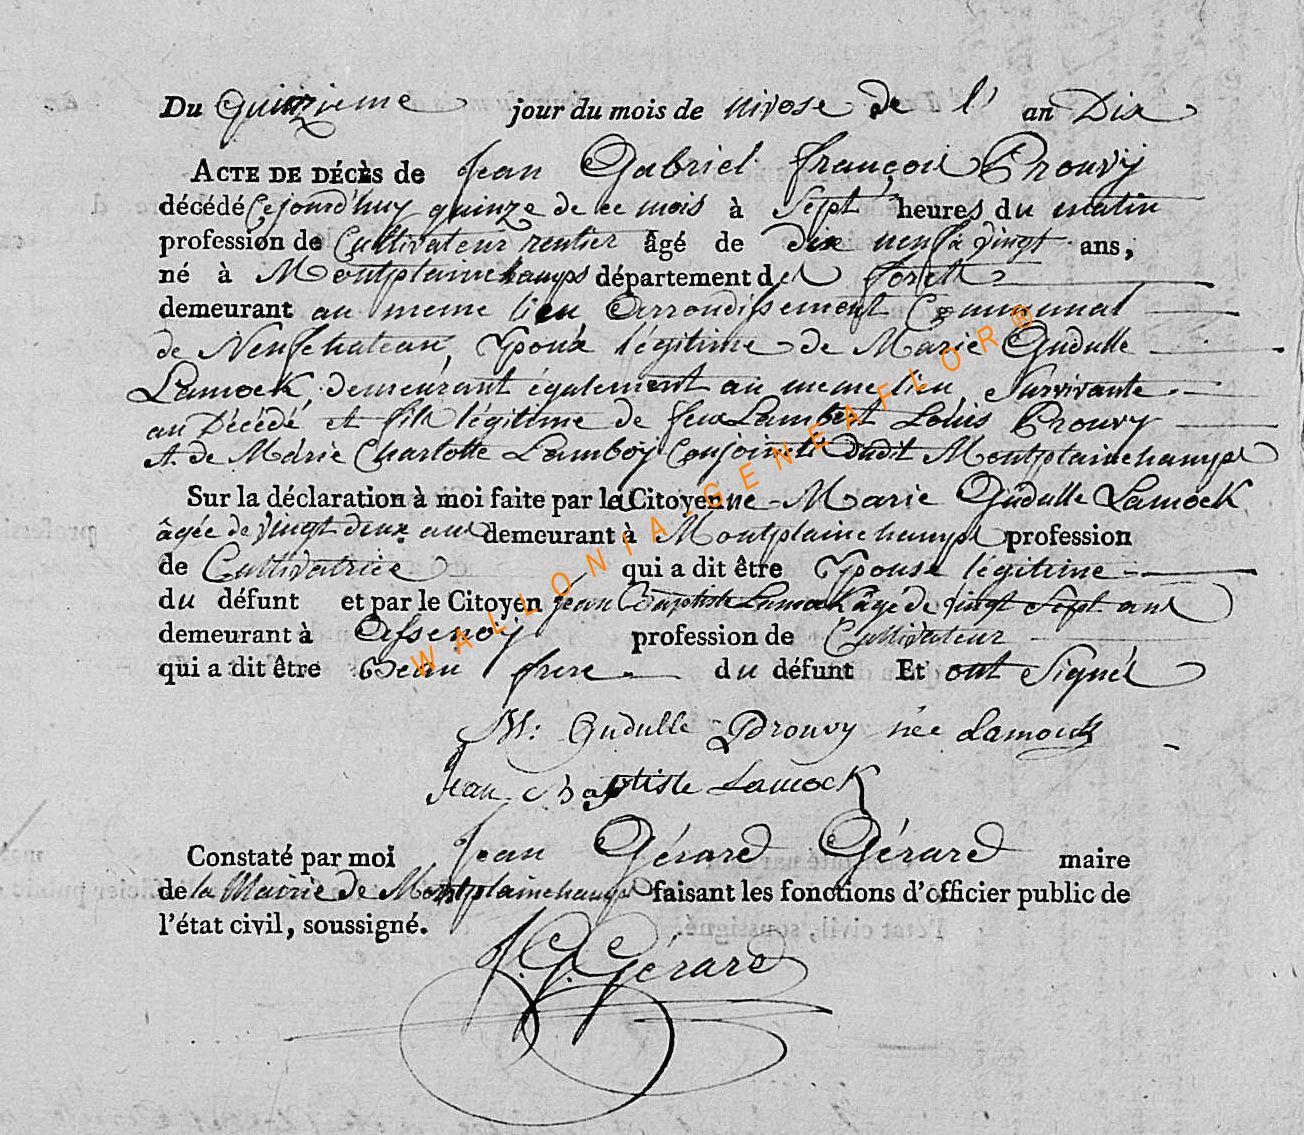 Du Quinzieme jour du mois de nivose de l' an Dix
ACTE DE DÉCÈS de Jean Gabriel François Prouvy
décédé Cejourd'huy quinze de ce mois à Sept heures du matin
profession de Cultivateur rentier âgé de dix neuf à vingt ans,
né à Montplainchamps département des forets
demeurant au meme lieu Arrondissement Communal
de Neufchateau, Epoux légitime de Marie Gudulle
Lamock, demeurant également au meme lieu, Survivante
au Décédé et fils légitime de feu Lambert Louis Prouvy
et de Marie Charlotte Lamboy Conjoints dudit Montplainchamps
Sur la déclaration à moi faite par la Citoyenne Marie Gudulle Lamock
âgée de vingt deux ans demeurant à Montplainchamps profession
de Cultivatrice qui a dit être Epouse légitime
du défunt et par le Citoyen jean Baptiste Lamock âgé de vingt Sept ans
demeurant à Assenoy profession de Cultivateur
qui a dit être Beau frere du défunt Et ont Signés
M: Gudulle Prouvy née Lamock
Jean Baptiste Lamock
Constaté par moi Jean Gérard Gérard maire
de la Mairie de Montplainchamps faisant les fonctions d'officier public de
l'état civil, soussigné.
J. G. Gérard
WALLONIA-GENEAFLOR®